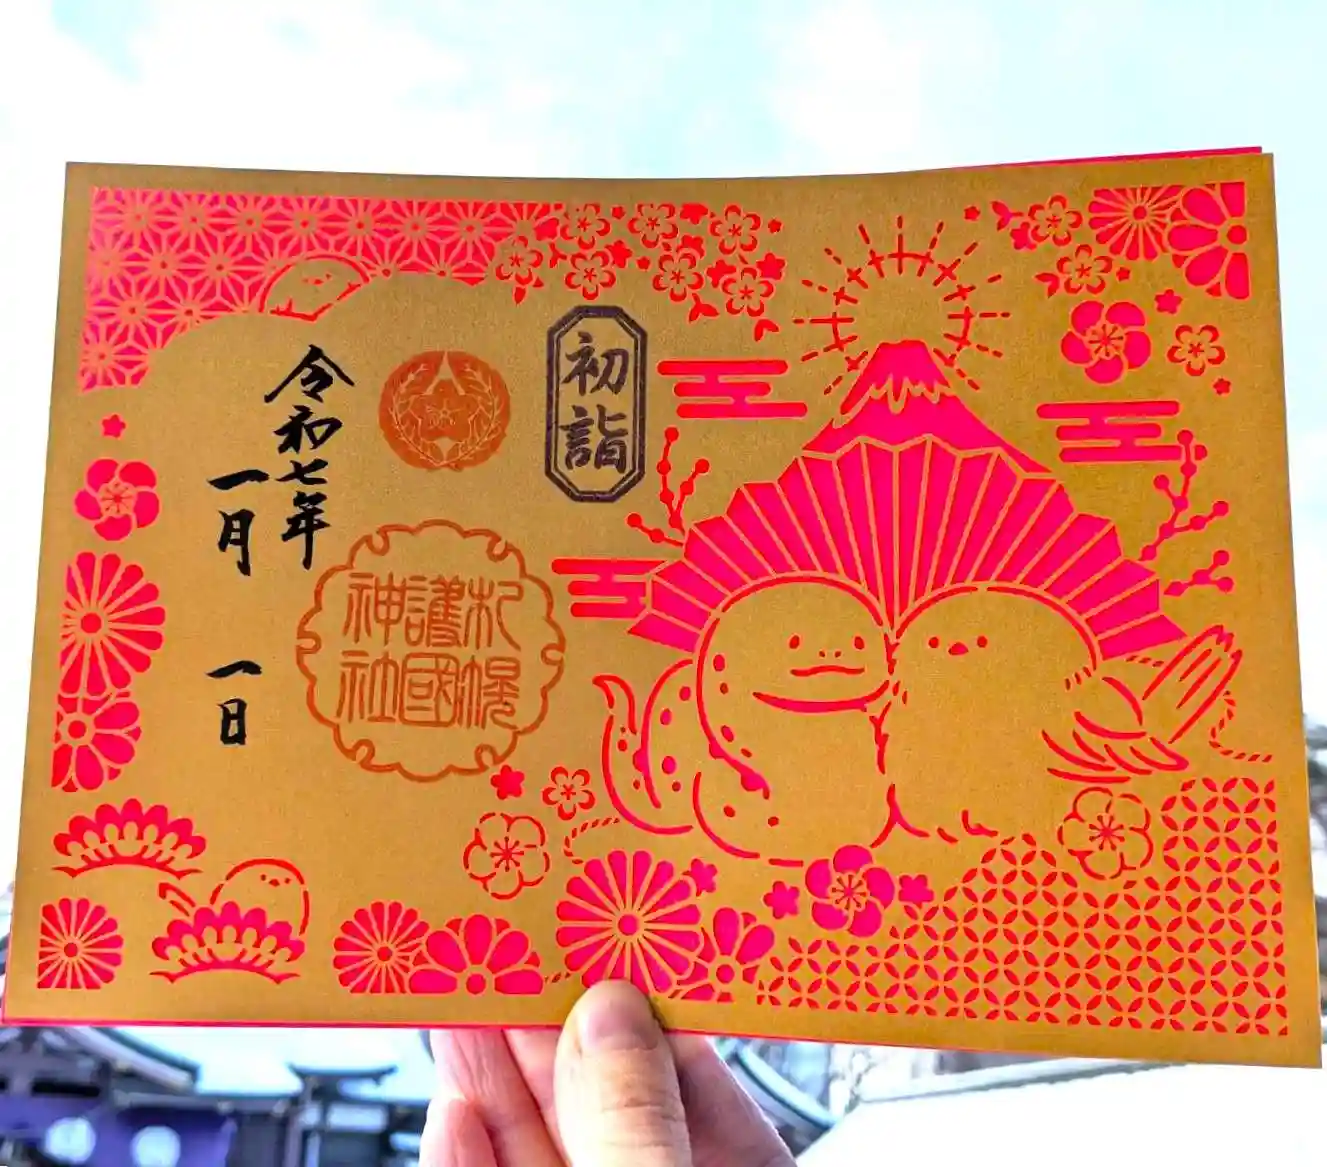 初詣
令和七年
一月一日
札幌
護國
神社